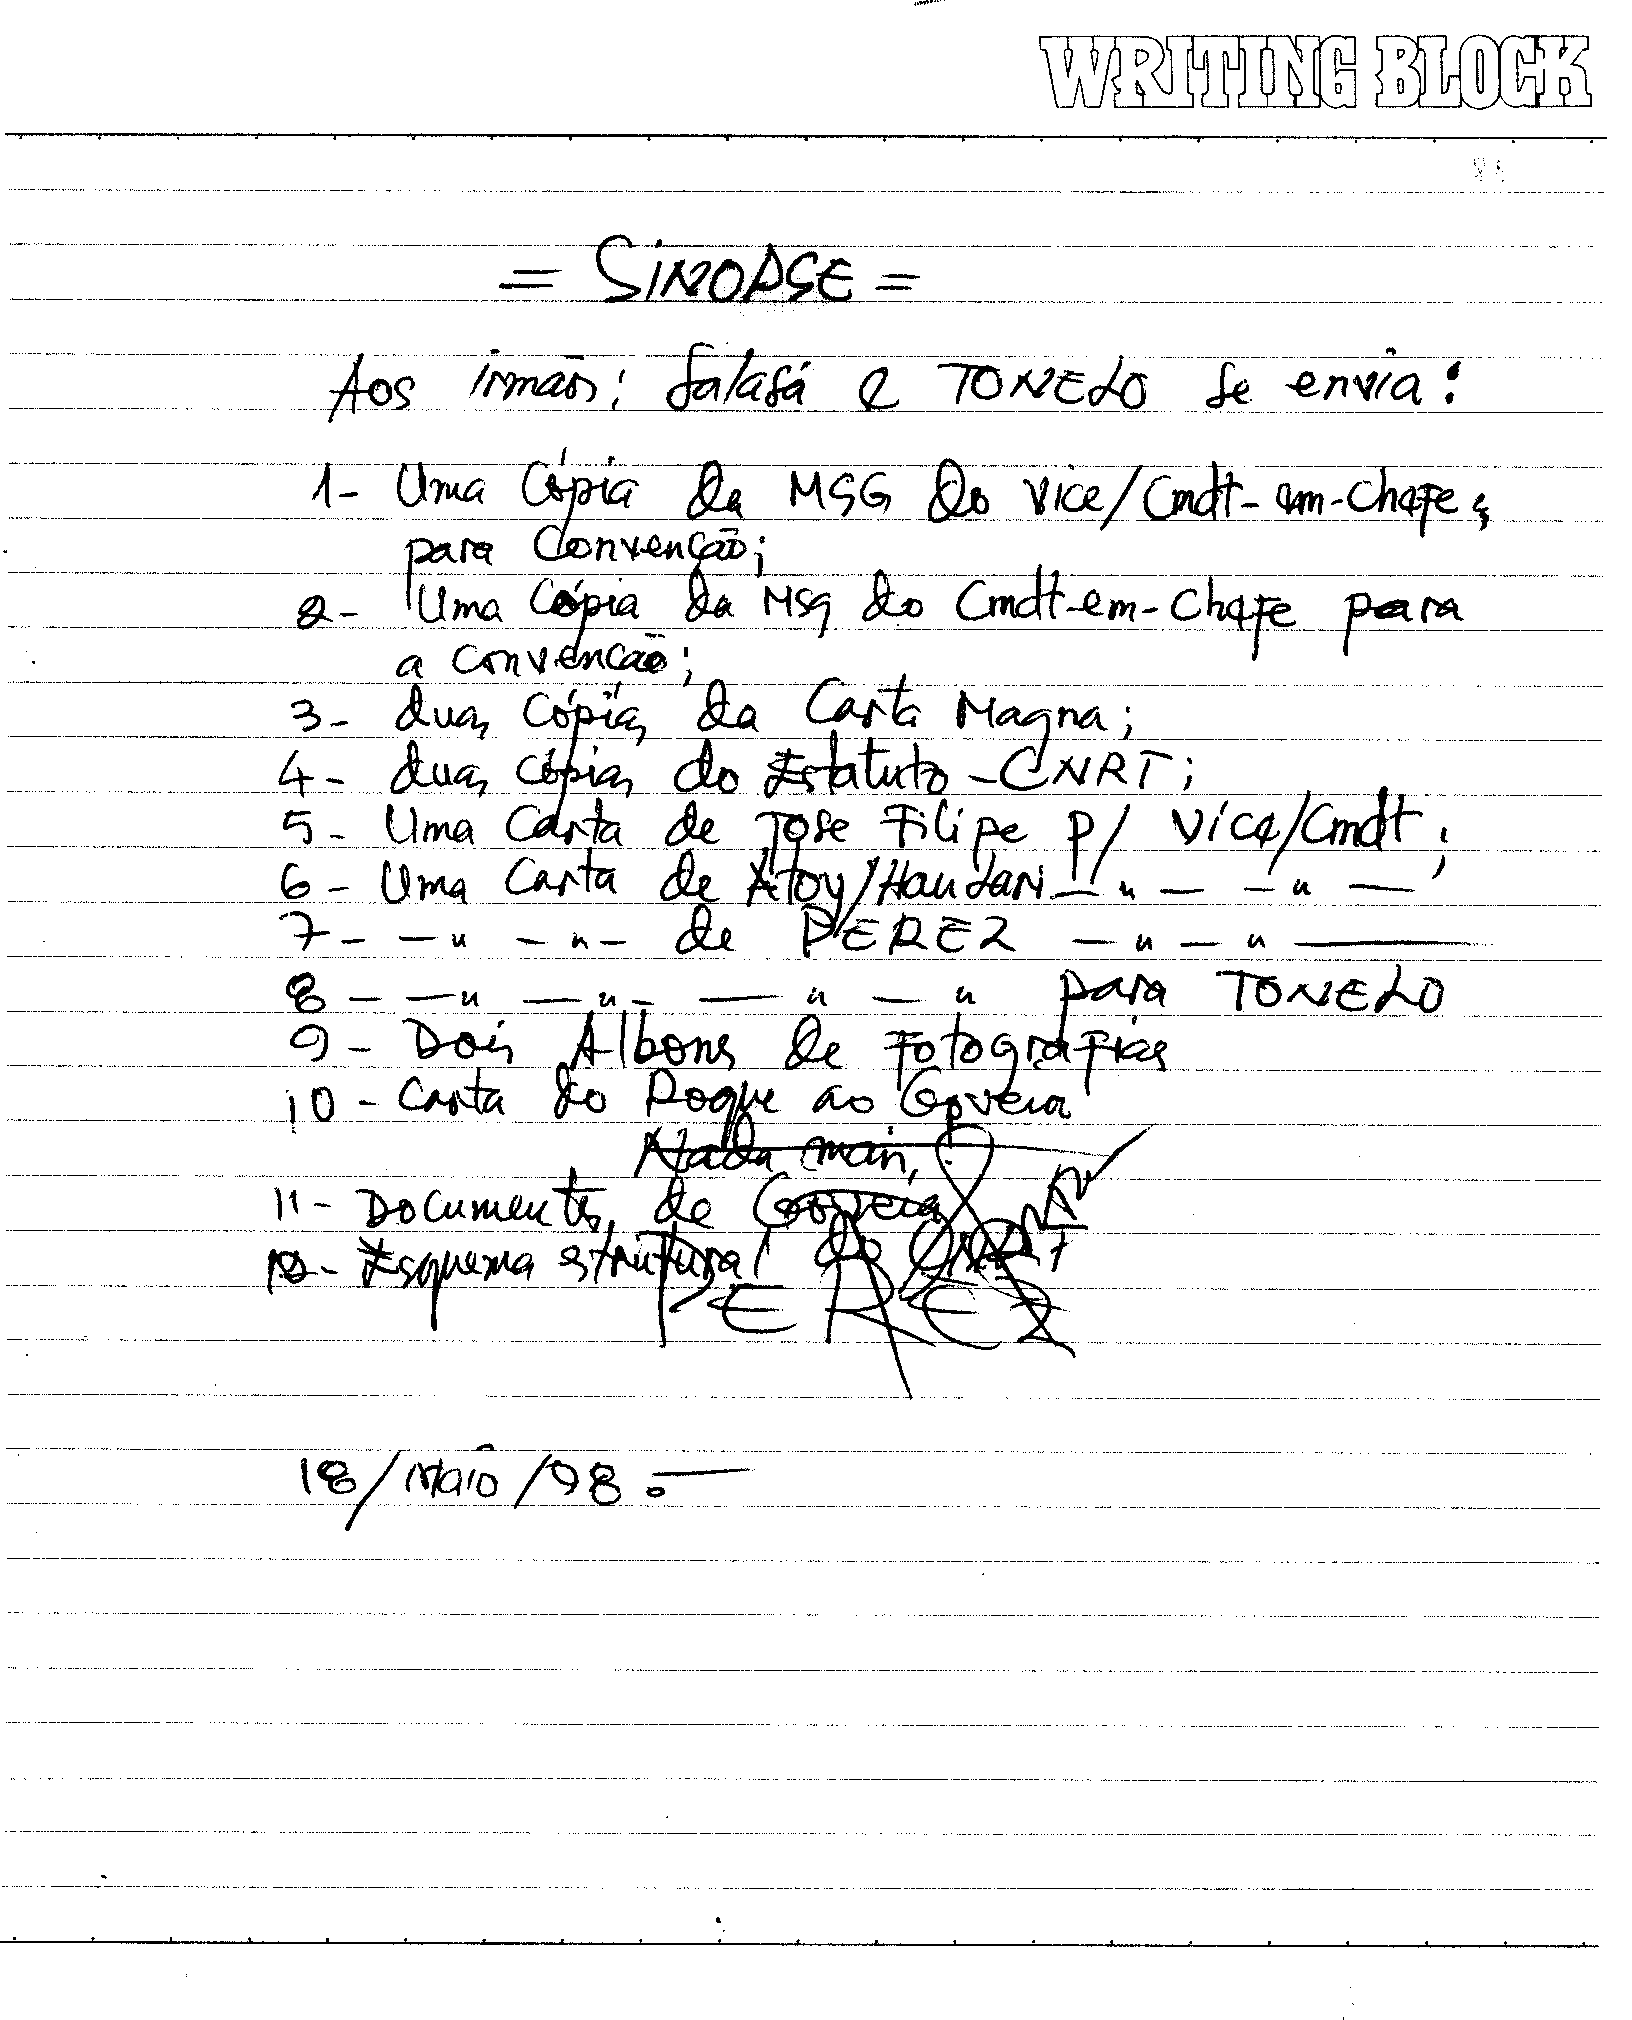 WRITING BLOCK
= SINOPSE =
Aos irmãos: Salasá e TONELO se envia:
1- Uma Cópia da MSG do Vice/Cmdt-em-Chefe,
para Convenção;
2- Uma Cópia da Msg do Cmdt-em-Chefe para
a convenção;
3- duas Cópias da Carta Magna;
4- duas cópias do Estatuto-CNRT;
5- Uma Carta de Jose Filipe p/ Vice/Cmdt;
6- Uma Carta de Atoy/Haudari — " — — " —
7- — " — " — de PEREZ — " — " —
8- — " — " — — " — " para TONELO
9- Dois Albons de Fotografias
10- Carta do Roque ao Gouveia
Nada mais,
11- Documentos de Gouveia
12- Esquema estrutural do CNRT
PEREZ
18/Maio/98.—